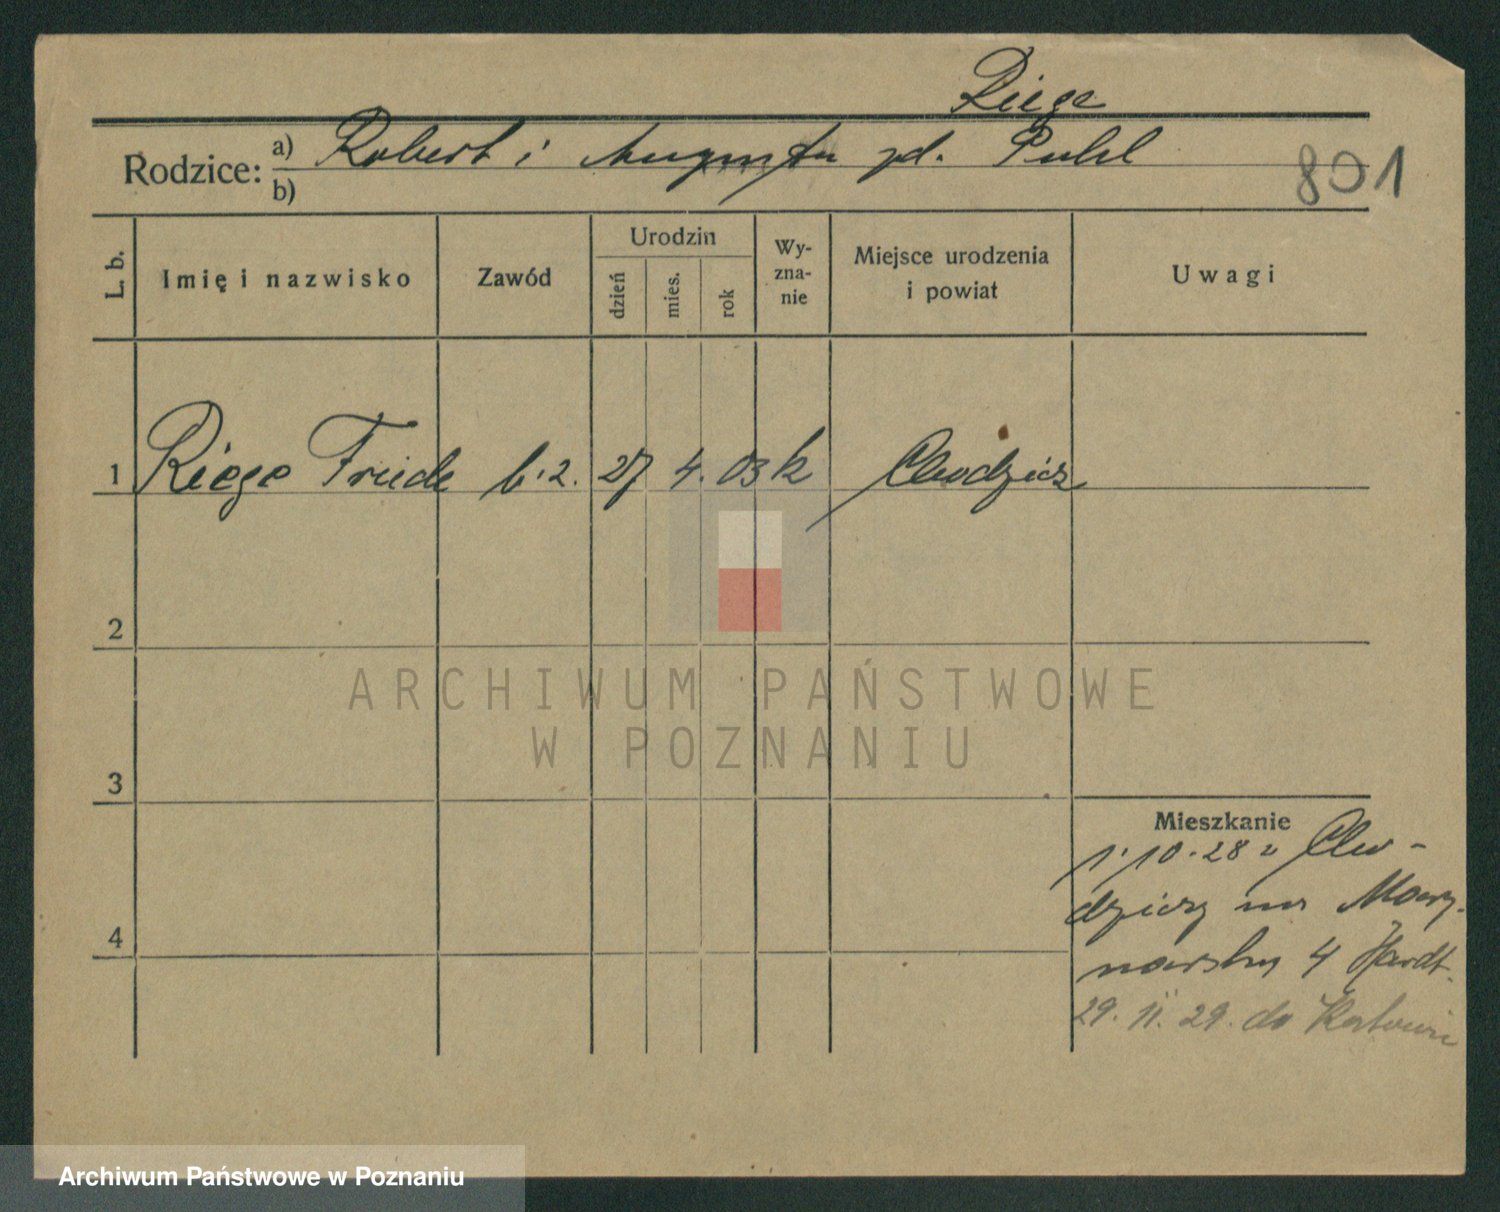 Riege
Rodzice: a) Robert i Augusta zd. Puhl
b)
801
L. b.
Imię i nazwisko
Zawód
Urodzin
dzień
mies.
rok
Wy-
zna-
nie
Miejsce urodzenia
i powiat
Uwagi
1 Riege Friede b. z. 27 4. 03 k Chodzież
2
3
4
Mieszkanie
1. 10. 28 z Cho-
dzieży
4 Hardt.
29. 11. 29. do Katowic
ARCHIWUM PAŃSTWOWE
W POZNANIU
Archiwum Państwowe w Poznaniu